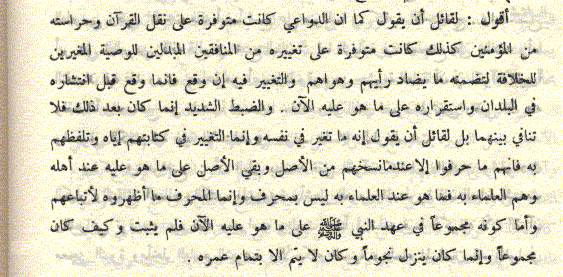 أقول : لقائل أن يقول كما ان الدواعي كانت متوفرة على نقل القرآن وحراسته
من المؤمنين كذلك كانت متوفرة على تغييره من المنافقين المبدلين للوصية المغيرين
للخلافة لتضمنه ما يضاد رأيهم وهواهم والتغيير فيه إن وقع فانما وقع قبل انتشاره
في البلدان واستقراره على ما هو عليه الآن . والضبط الشديد إنما كان بعد ذلك فلا
تنافي بينهما بل لقائل أن يقول إنه ما تغير في نفسه وإنما التغيير في كتابتهم إياه وتلفظهم
به فانهم ما حرفوا إلا عندمانسخهم من الأصل وبقي الأصل على ما هو عليه عند أهله
وهم العلماء به فما هو عند العلماء به ليس بمحرف وإنما المحرف ما أظهروه لأتباعهم
وأما كونه مجموعاً في عهد النبي ﷺ على ما هو عليه الآن فلم يثبت وكيف كان
مجموعاً وإنما كان ينزل نجوماً وكان لا يتم الا بتمام عمره .